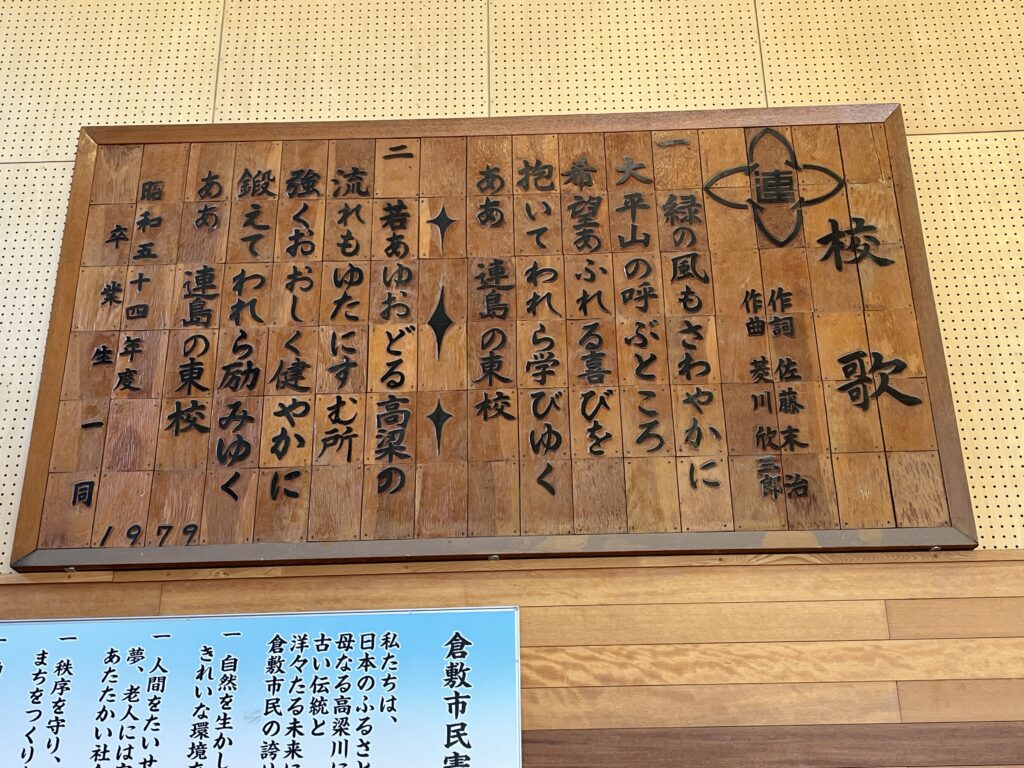 校歌
連
作詞 佐藤末治
作曲 菱川欣三郎
一 緑の風もさわやかに
大平山の呼ぶところ
希望あふれる喜びを
抱いてわれら学びゆく
ああ 連島の東校
二 若あゆおどる高梁の
流れもゆたにすむ所
強くおおしく健やかに
鍛えてわれら励みゆく
ああ 連島の東校
昭和五十四年度
卒業生一同
1979
倉敷市民憲
私たちは、
日本のふるさと
母なる高梁川に
古い伝統と
洋々たる未来に
倉敷市民の誇
一 自然を生かし
きれいな環境
一 人間をたいせ
夢、老人には
あたたかい社会
一 秩序を守り、
まちをつくり
一